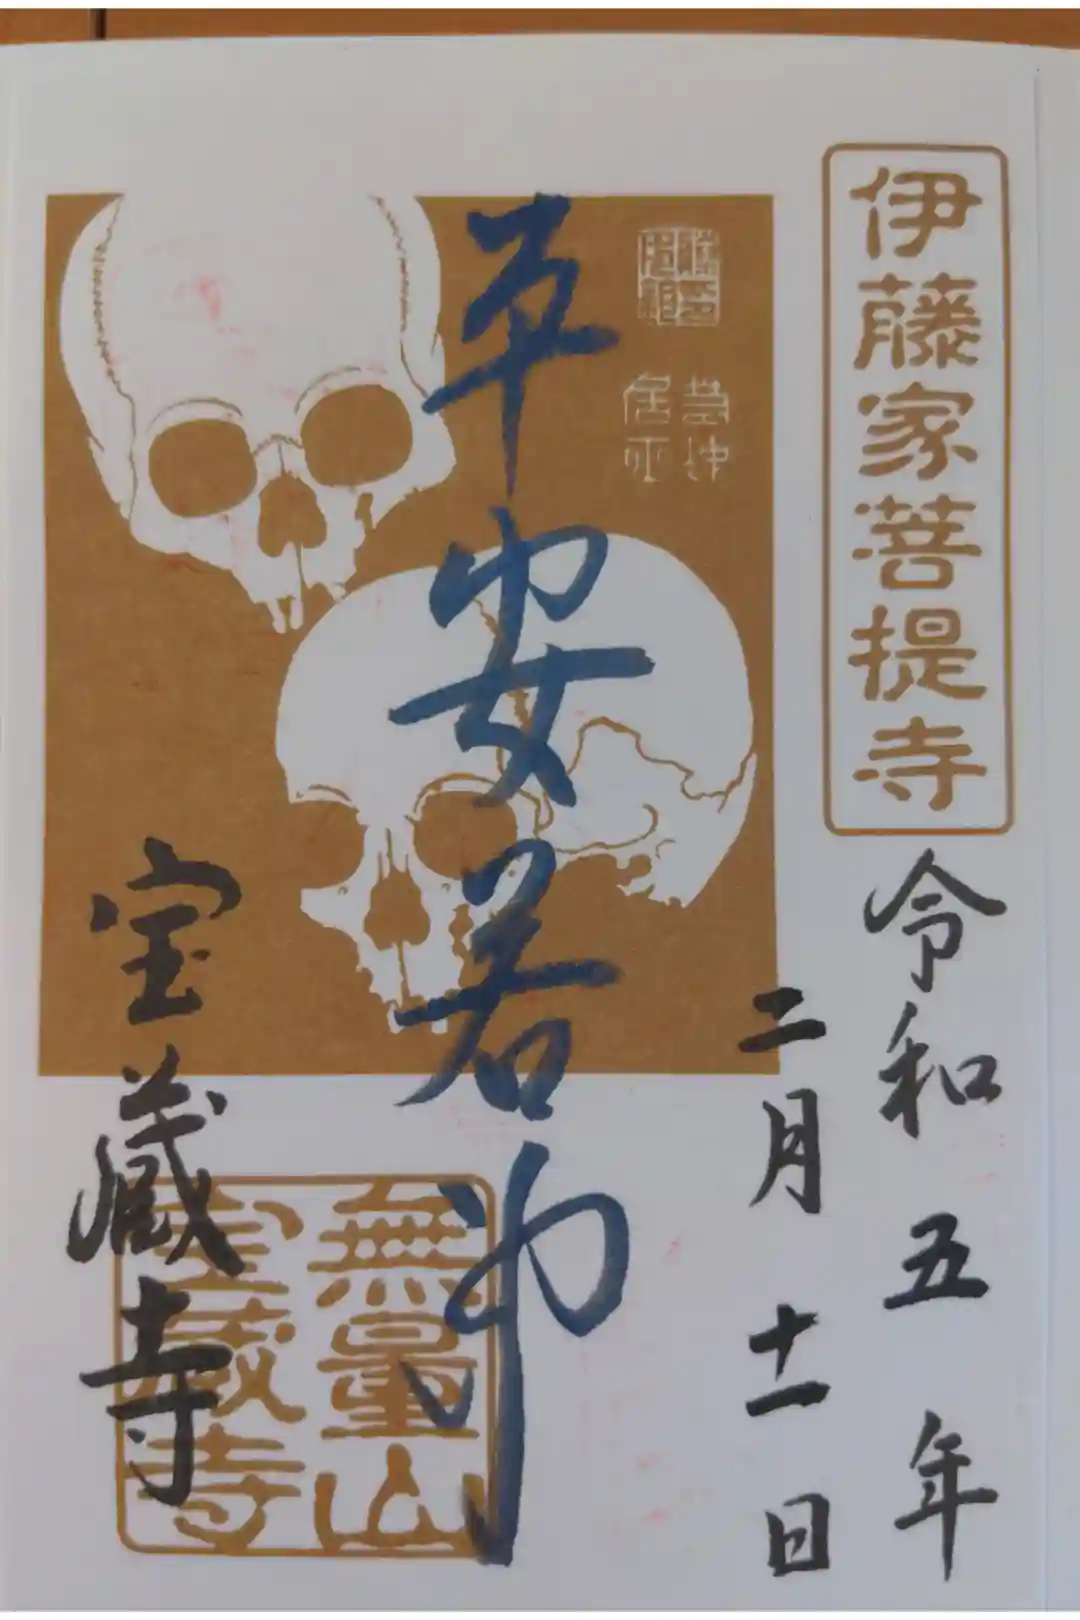 伊藤家菩提寺
令和五年
二月十一日
若冲
居士
平安若冲
無量山
宝蔵寺
宝蔵寺